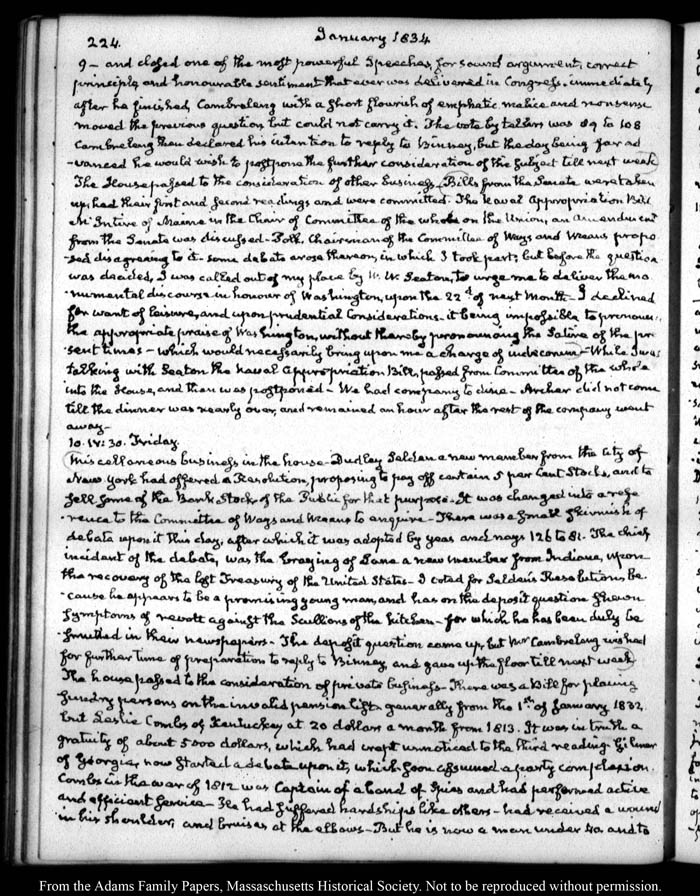 224.
January 1834
9 — and closed one of the most powerful Speeches, for sound argument, correct
principle, and honourable sentiment that ever was delivered in Congress. immediately
after he finished, Cambreleng with a short flourish of emphatic malice and nonsense
moved the previous question, but could not carry it. The vote by tellers was 89 to 108
Cambreleng then declared his intention to reply to Binney, but the day being far ad
-vanced he would wish to postpone the further consideration of the subject till next week
The House passed to the consideration of other business. Bills from the Senate were taken
up, had their first and second readings and were committed. The Naval Appropriation Bill
McIntire of Maine in the Chair of Committee of the whole on the Union, an amendment
from the Senate was discussed — Polk, Chairman of the Committee of Ways and Means propo
sed disagreeing to it — some debate arose thereon, in which I took part; but before the question
was decided, I was called out of my place by W. W. Seaton, to urge me to deliver the mo
numental discourse in honour of Washington, upon the 22d of next Month — I declined
for want of leisure, and upon prudential considerations. it being impossible to pronoun
the appropriate praise of Washington, without thereby pronouncing the Satire of the pre
sent times — which would necessarily bring upon me a charge of indecorum — While I was
talking with Seaton the Naval Appropriation Bill, passed from Committee of the whole
into the House, and then was postponed — We had company to dine — Archer did not come
till the dinner was nearly over, and remained an hour after the rest of the company went
away —
10. IV: 30. Friday.
Miscellaneous business in the house — Dudley Selden a new member from the City of
New York had offered a Resolution, proposing to pay off certain 5 per Cent Stocks, and to
sell some of the Bank Stock of the Public for that purpose — It was changed into a refe
rence to the Committee of Ways and Means to enquire — There was a small skirmish of
debate upon it this day, after which it was adopted by yeas and nays 126 to 81. The chief
incident of the debate, was the braying of Lane a new member from Indiana, upon
the recovery of the lost Treasury of the United States — I voted for Selden's Resolution, be
cause he appears to be a promising young man, and has on the deposit question shewn
symptoms of revolt against the Scullions of the kitchen — for which he has been duly be
-smutted in their newspapers — The deposit question came up, but Mr Cambreleng wished
for further time of preparation to reply to Binney, and gave up the floor till next week
The house passed to the consideration of private business — There was a Bill for placing
sundry persons on the invalid pension list, generally from the 1st of January 1832
but Leslie Combs of Kentucky at 20 dollars a month from 1813. It was in truth a
gratuity of about 5000 dollars, which had crept unnoticed to the third reading. Gilmer
of Georgia, now started a debate upon it, which soon assumed a party complexion.
Combs in the war of 1812 was Captain of a band of Spies and had performed active
and efficient service — He had suffered hardships like others — had received a wound
in his shoulder, and bruises at the elbows — But he is now a man under 40. and to
From the Adams Family Papers, Massachusetts Historical Society. Not to be reproduced without permission.